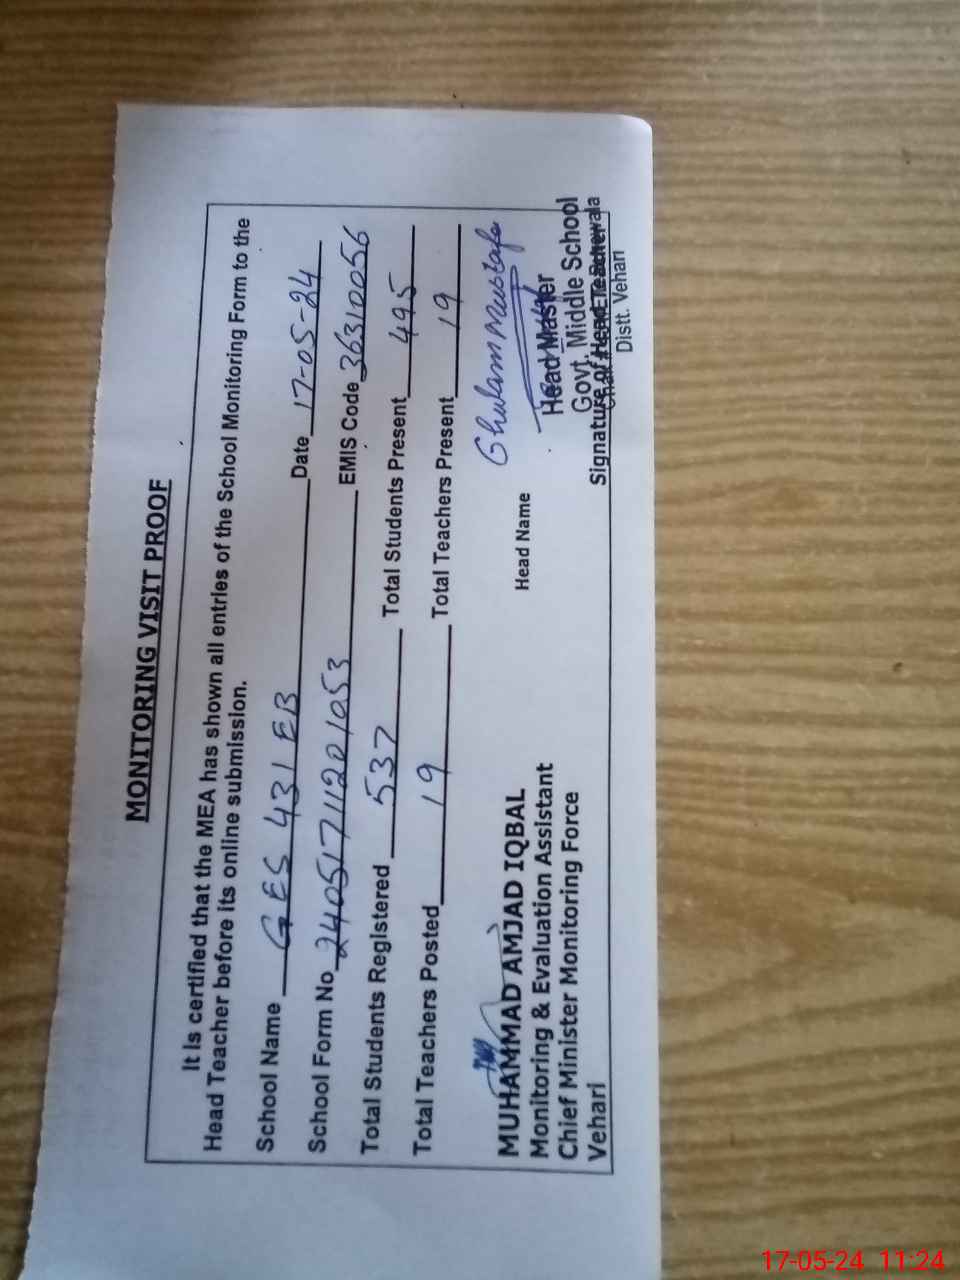 MONITORING VISIT PROOF
It Is certified that the MEA has shown all entries of the School Monitoring Form to the
Head Teacher before its online submission.
School Name GES 431 EB Date 17-05-24
School Form No 24051711201053 EMIS Code 36310056
Total Students Registered 537 Total Students Present 495
Total Teachers Posted 19 Total Teachers Present 19
Head Name Ghulam Mustafa
MUHAMMAD AMJAD IQBAL
Monitoring & Evaluation Assistant
Chief Minister Monitoring Force
Vehari
Head Master
Govt. Middle School
Signature of Head Teacher
Distt. Vehari
17-05-24 11:24